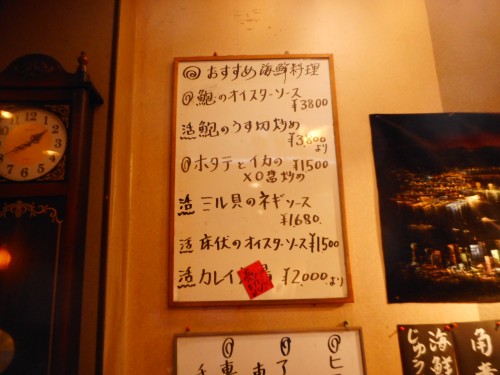 ◎おすすめ海鮮料理
◎鮑のオイスターソース
¥3800
活鮑のうす切炒め
¥3,800より
◎ホタテとイカの¥1500
XO醤炒め
活ミル貝のネギソース
¥1680.
活床伏のオイスターソース¥1500
活カレイ ¥2,000より
角煮
海鮮
じゅう